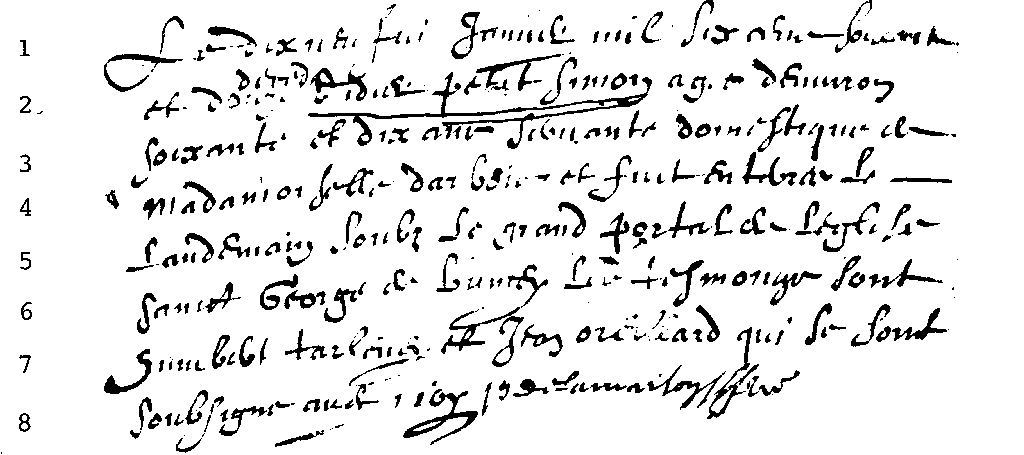 1 Le dixneufvi Janvie mil six cens soixante
2. et douze deceda Didie petit simon agee denviron
3 soixante et dix ans servante domestique de
4 Madamoiselle darbois et fuit enterree le
5 Landemain soubz le grand portal de leglise
6 sainct George de les tesmoings sont
7 humbert et Jean qui se sont
8 soubsigne avec moy